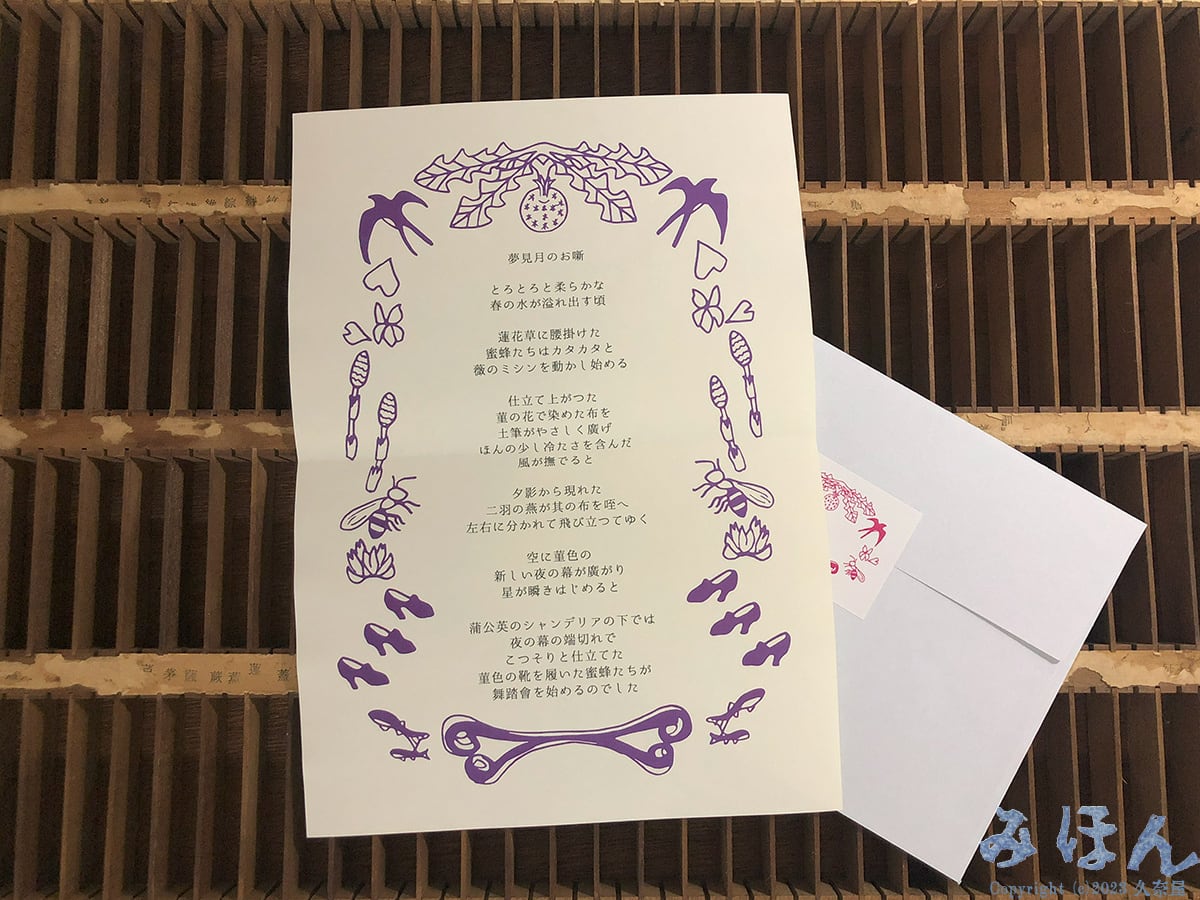 夢見月のお噺
とろとろと柔らかな
春の水が溢れ出す頃
蓮花草に腰掛けた
蜜蜂たちはカタカタと
薇のミシンを動かし始める
仕立て上がつた
菫の花で染めた布を
土筆がやさしく廣げ
ほんの少し冷たさを含んだ
風が撫でると
夕影から現れた
二羽の燕が其の布を咥へ
左右に分かれて飛び立つてゆく
空に菫色の
新しい夜の幕が廣がり
星が瞬きはじめると
蒲公英のシャンデリアの下では
夜の幕の端切れで
こつそりと仕立てた
菫色の靴を履いた蜜蜂たちが
舞踏會を始めるのでした
みほん
Copyright (c)2023 久奈屋